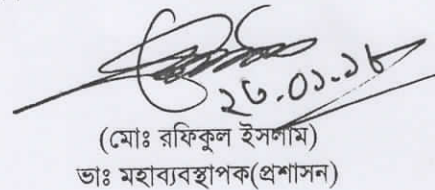 ২৩-০১-১৮
(মোঃ রফিকুল ইসলাম)
ভাঃ মহাব্যবস্থাপক(প্রশাসন)